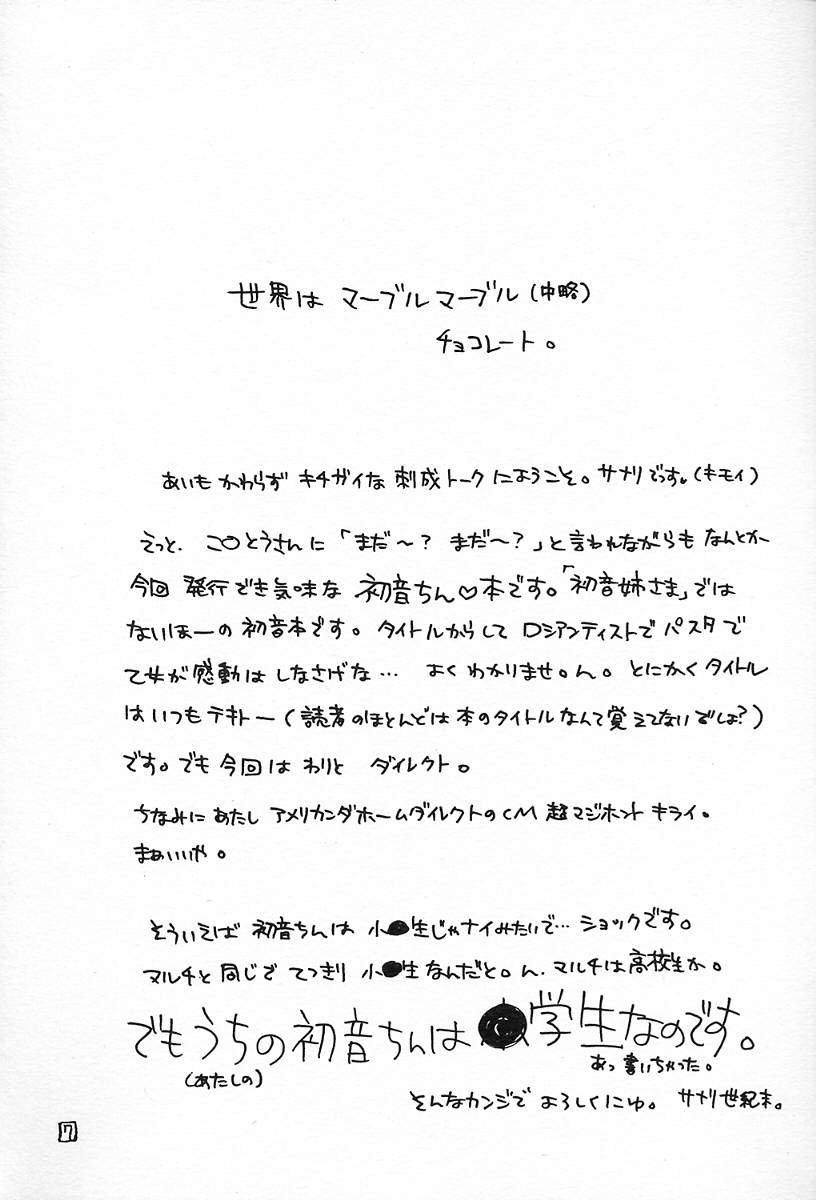 世界は マーブルマーブル(中略)
チョコレート。
あいもかわらず キチガイな 刺成トークにようこそ。サナリでっす。(キモイ)
えっと、こ○とうさんに「まだ〜? まだ〜?」と言われながらも なんとか
今回 発行でき気味な 初音ちん♡本です。「初音姉さま」では
ないほーの初音本です。タイトルからして ロシアンティストで パスタで
て女が感動は しなさげな… よくわかりませ。ん。とにかくタイトル
はいつもテキトー(読者のほとんどは本のタイトルなんて覚えてないでしょ?)
です。でも今回は わりと ダイレクト。
ちなみにあたし アメリカンダホームダイレクトのCM 超マジホント キライ。
まぁいいや。
そういえば 初音ちんは 小●生じゃナイみたいで… ショックです。
マルチと同じで てっきり 小●生なんだと。ん、マルチは高校生か。
でもうちの初音ちんは ●学生なのです。
(あたしの)
あっ書いちゃった。
そんなカンジで よろしくにゅ。 サナリ世紀末。
7